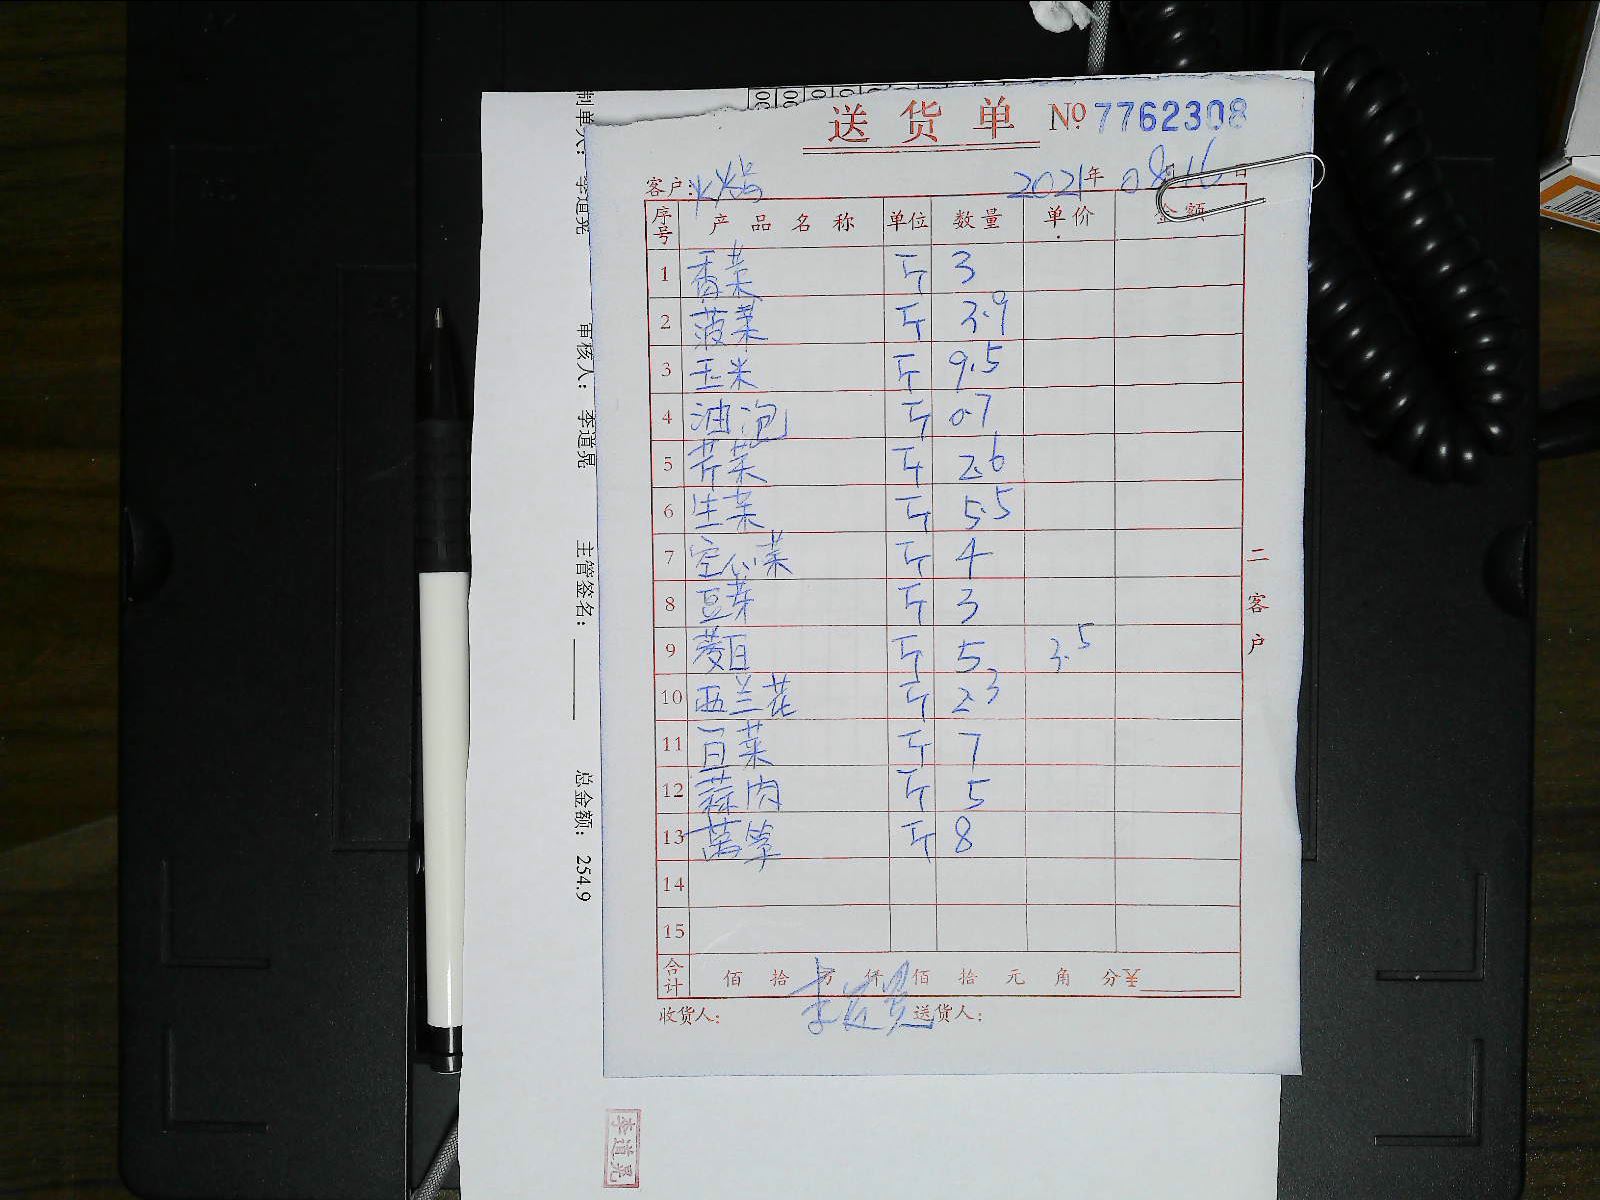 送货单 № 7762308
客户: 火锅 2021年 08月16日
序号 产品名称 单位 数量 单价 金额
1 香菜 斤 3
2 菠菜 斤 3.9
3 玉米 斤 9.5
4 油泡 斤 0.7
5 芹菜 斤 2.6
6 生菜 斤 5.5
7 空心菜 斤 4
8 豆芽 斤 3
9 茭白 斤 5 3.5
10 西兰花 斤 2.3
11 百菜 斤 7
12 蒜肉 斤 5
13 莴笋 斤 8
14
15
合计 佰 拾 万 仟 佰 拾 元 角 分 ¥
收货人: 李道晃 送货人:
二客户
制单人: 李道晃 审核人: 李道晃 主管签名: 总金额: 254.9
李道晃